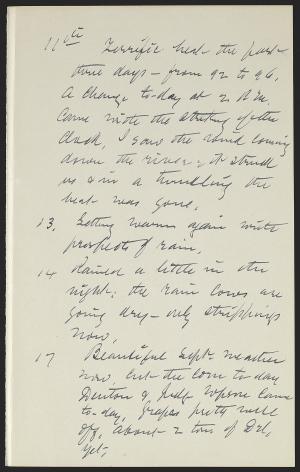 11th Terrific heat the past
three days - from 92 to 96.
A change to-day at 2 P.M.
Came with the striking of the
clock, I saw the wind coming
down the river & it struck
us & in a twinkling the
heat was gone.
13, Getting warm again with
prospects of rain.
14 Rained a little in the
night; the rain cows are
going dry - only strippings
now.
17 Beautiful Sept. weather
now. Cut the corn to-day
Denton & Judge came
to-day, Grapes pretty well
off, About 2 tons of Del,
yet,